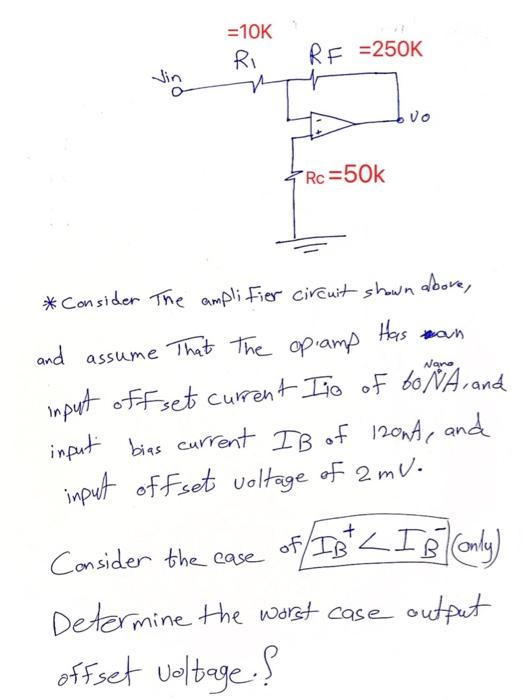 =10K
R1 RF =250K
Vin
-
+
Vo
Rc =50k
* Consider The amplifier circuit shown above,
and assume That The op.amp Has an
Nano
input offset current Iio of 60NA, and
input bias current IB of 120nA, and
input offset voltage of 2mV.
Consider the case of IB+ < IB- (only)
Determine the worst case output
offset voltage.?